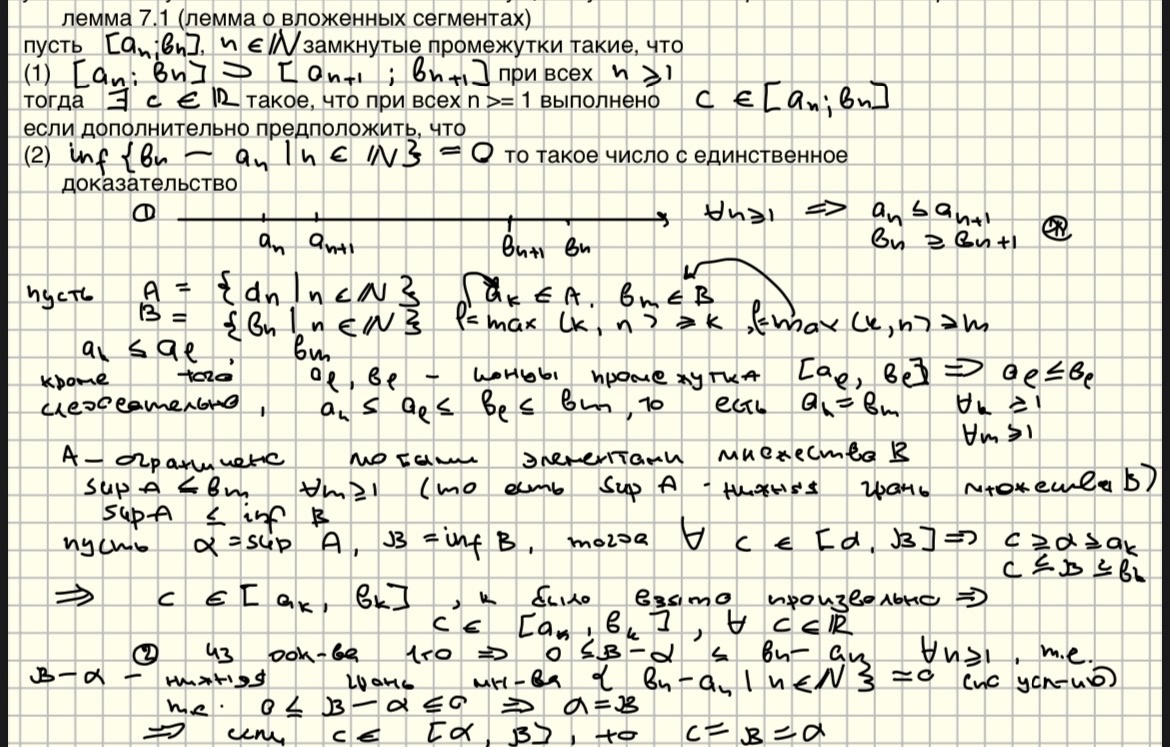 лемма 7.1 (лемма о вложенных сегментах)
пусть [aₙ; bₙ], n ∈ ℕ замкнутые промежутки такие, что
(1) [aₙ; bₙ] ⊃ [aₙ₊₁ ; bₙ₊₁] при всех n ⩾ 1
тогда ∃ c ∈ ℝ такое, что при всех n >= 1 выполнено c ∈ [aₙ; bₙ]
если дополнительно предположить, что
(2) inf {bₙ − aₙ | n ∈ ℕ} = 0 то такое число с единственное
доказательство
① aₙ aₙ₊₁ bₙ₊₁ bₙ ∀n⩾1 ⇒ aₙ ≤ aₙ₊₁
bₙ ≥ bₙ₊₁ ⊛
пусть A = {aₙ | n ∈ ℕ} aₖ ∈ A, bₘ ∈ B
B = {bₙ | n ∈ ℕ} l = max (k, n) ⩾ k, l = max (k, n) ⩾ m
aₖ ≤ aₗ, bₘ
кроме того aₗ, bₗ – концы промежутка [aₗ, bₗ] ⇒ aₗ ≤ bₗ
следовательно, aₖ ≤ aₗ ≤ bₗ ≤ bₘ, то есть aₖ = bₘ ∀k ⩾ 1
∀m ⩾ 1
A – ограничено любыми элементами множества B
sup A ≤ bₘ ∀m ⩾ 1 (то есть sup A - нижняя грань множества B)
sup A ≤ inf B
пусть α = sup A, β = inf B, тогда ∀ c ∈ [α, β] ⇒ c ⩾ α ⩾ aₖ
c ≤ β ≤ bₖ
⇒ c ∈ [aₖ, bₖ], k было взято произвольно ⇒
c ∈ [aₖ, bₖ], ∀ c ∈ ℝ
② из док-ва что ⇒ 0 ≤ β − α ≤ bₙ − aₙ ∀n ⩾ 1, т.е.
β − α – нижняя грань мн-ва {bₙ − aₙ | n ∈ ℕ} = 0
т.е. 0 ≤ β − α ≤ 0 ⇒ α = β
⇒ если c ∈ [α, β], то c = β = α